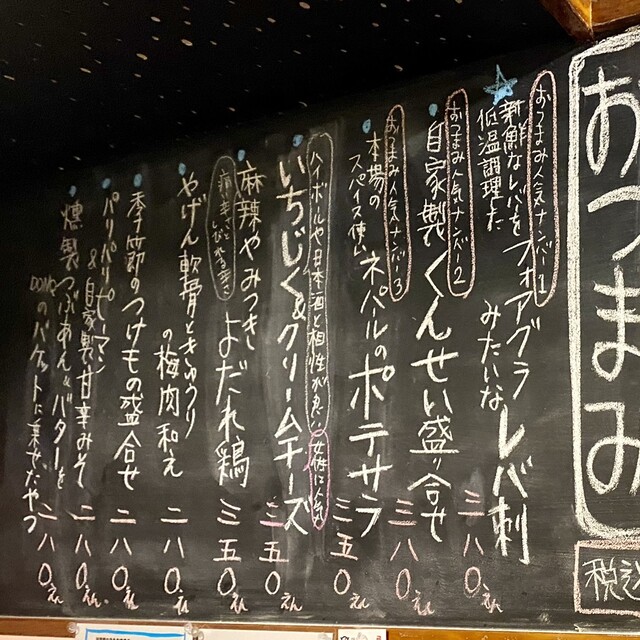 おつまみ
税込
おつまみ人気ナンバー1
新鮮なレバを
低温調理した
フォアグラ
みたいな
レバ刺
三八〇えん
おつまみ人気ナンバー2
自家製くんせい盛り合せ
三八〇えん
おつまみ人気ナンバー3
本場の
スパイス使い
ネパールのポテサラ
三五〇えん
ハイボールや日本酒と相性が良い
女性に人気
いちじく&クリームチーズ
三五〇えん
麻辣やみつき
よだれ鶏
しびれる辛さ
三五〇えん
やげん軟骨ときゅうり
の梅肉和え
二八〇えん
季節のつけもの盛合せ
二八〇えん
パリパリピーマン
&自家製甘辛みそ
二八〇えん
燻製つぶあん&バターを
DONQのバケットに乗せたやつ
二八〇えん